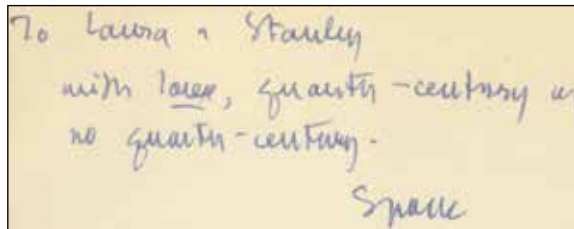 To Laura & Stanley
with love, quarter-century or
no quarter-century.
Spark